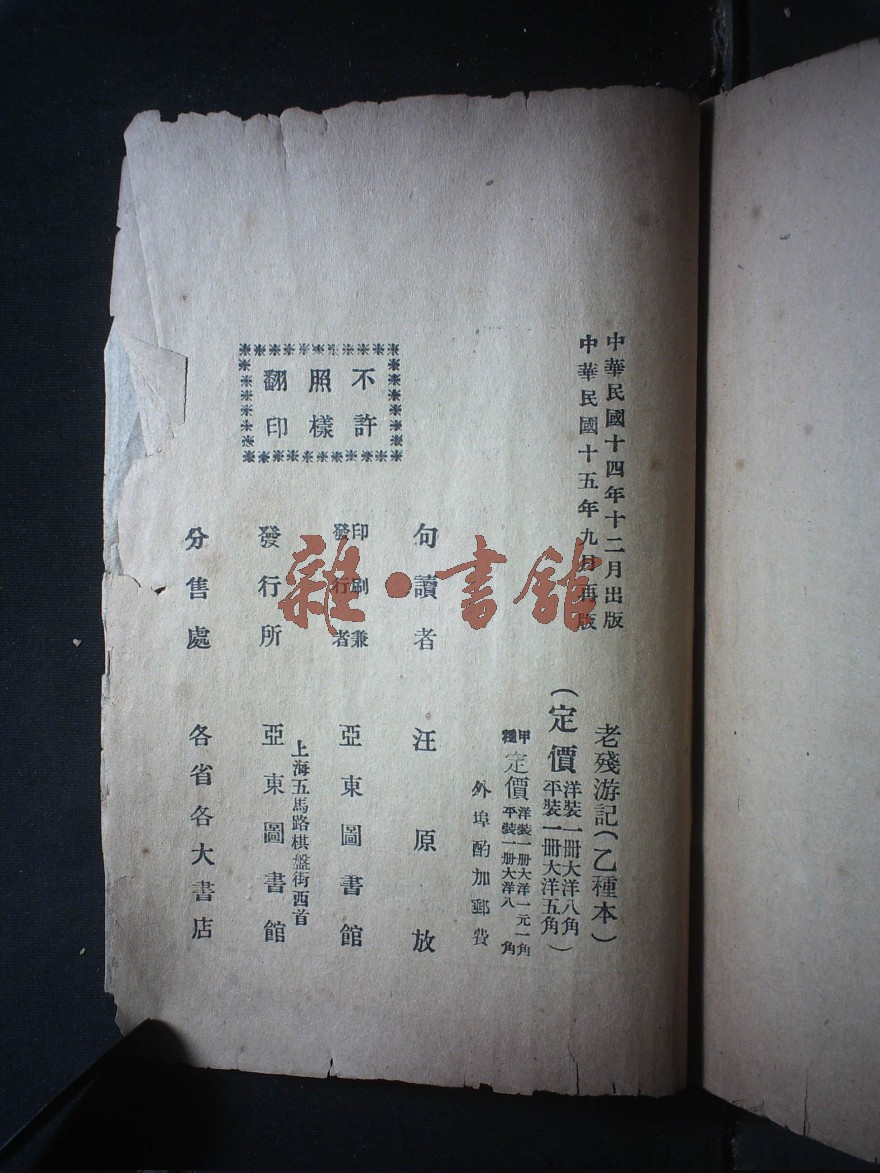 中華民國十四年十二月出版
中華民國十五年九月再版
老殘游記（乙種本）
（定價洋裝一冊大洋八角
平裝一冊大洋五角）
甲種定價洋裝一冊大洋一元一角
平裝一冊大洋八角
外埠酌加郵費
不許
照樣
翻印
句讀者 汪原放
印刷兼
發行者 亞東圖書館
上海五馬路棋盤街西首
發行所 亞東圖書館
分售處 各省各大書店
雜·書館